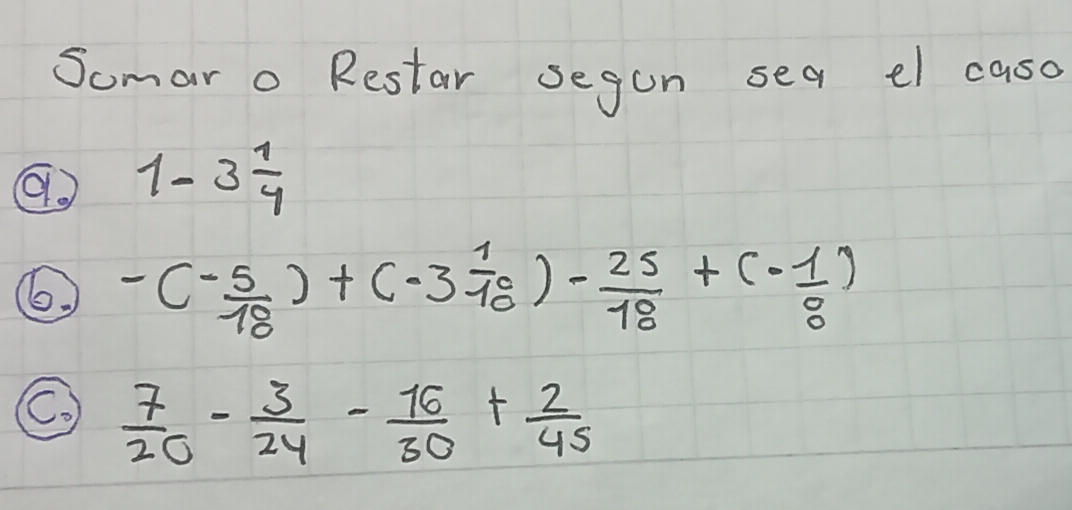 Sumar o Restar segun sea el caso
a. 1 - 3 1/4
b. -(-5/18) + (-3 1/18) - 25/18 + (-1/8)
c. 7/20 - 3/24 - 16/30 + 2/45